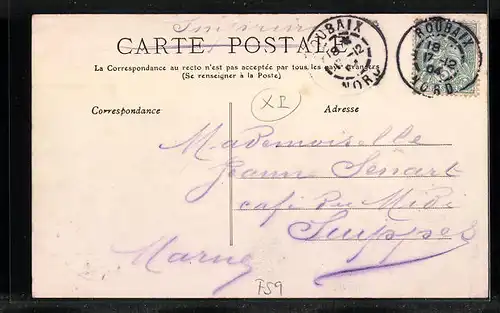 Imprimé
CARTE POSTALE
La Correspondance au recto n'est pas acceptée par tous les pays étrangers
(Se renseigner à la Poste)
ROUBAIX
NORD
ROUBAIX
18
17-12
04
NORD
XI
Correspondance
Adresse
Mademoiselle
Jeanne Senart
café du Midi
Suippes
Marne
F59